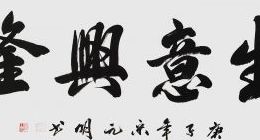 生意興隆
庚子年宋元明书